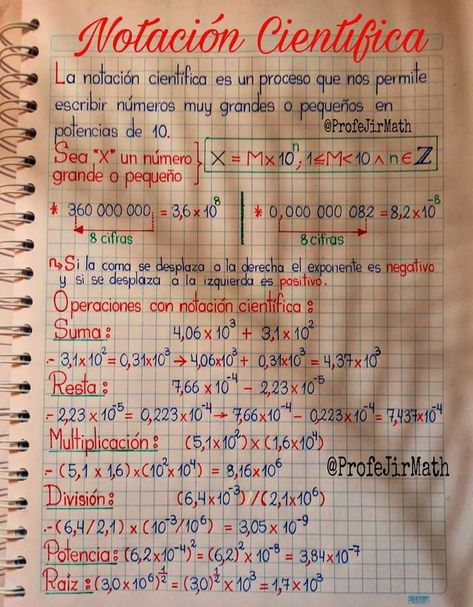 Notación Científica
La notación científica es un proceso que nos permite
escribir números muy grandes o pequeños en
potencias de 10.
@ProfeJirMath
Sea "X" un número
grande o pequeño } X = M×10ⁿ; 1≤M<10 ∧ n∈ℤ
* 360 000 000, = 3,6×10⁸
8 cifras
* 0,000 000 082 = 8,2×10⁻⁸
8 cifras
↳ Si la coma se desplaza a la derecha el exponente es negativo
y si se desplaza a la izquierda es positivo.
Operaciones con notación científica:
Suma: 4,06×10³ + 3,1×10²
.- 3,1×10² = 0,31×10³ → 4,06×10³ + 0,31×10³ = 4,37×10³
Resta: 7,66×10⁻⁴ − 2,23×10⁻⁵
.- 2,23×10⁻⁵ = 0,223×10⁻⁴ → 7,66×10⁻⁴ − 0,223×10⁻⁴ = 7,437×10⁻⁴
Multiplicación: (5,1×10²)×(1,6×10⁴)
.- (5,1 × 1,6)×(10²×10⁴) = 8,16×10⁶
@ProfeJirMath
División: (6,4×10⁻³)/(2,1×10⁶)
.- (6,4/2,1)×(10⁻³/10⁶) = 3,05×10⁻⁹
Potencia: (6,2×10⁻⁴)² = (6,2)²×10⁻⁸ = 3,84×10⁻⁷
Raíz: (3,0×10⁶)^½ = (3,0)^½×10³ = 1,7×10³